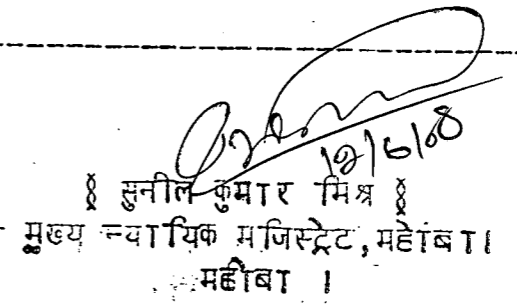 12/6/08
§ सुनील कुमार मिश्र §
मुख्य न्यायिक मजिस्ट्रेट, महोबा।
महोबा ।